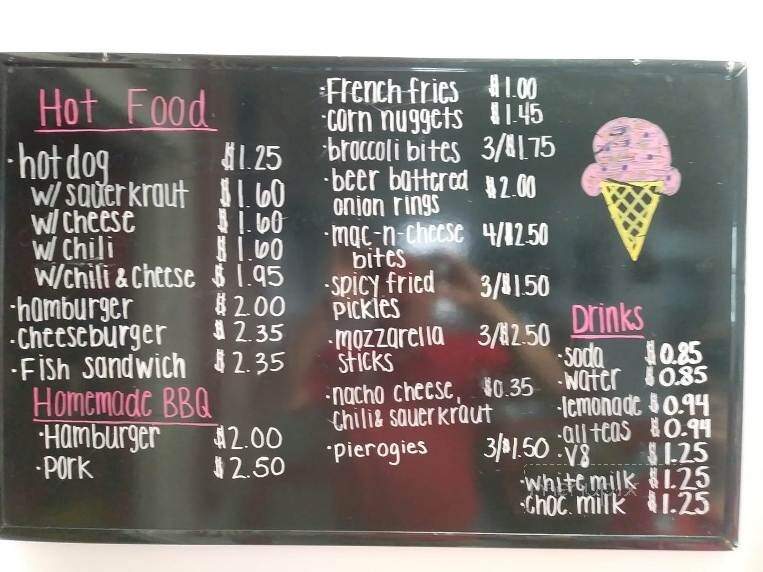 Hot Food
·hotdog $1.25
w/ sauerkraut $1.60
w/ cheese $1.60
w/ chili $1.60
w/chili & cheese $1.95
·hamburger $2.00
·cheeseburger $2.35
·Fish sandwich $2.35
Homemade BBQ
·Hamburger $2.00
·Pork $2.50
·French fries $1.00
·corn nuggets $1.45
·broccoli bites 3/$1.75
·beer battered $2.00
onion rings
·mac-n-cheese 4/$2.50
bites
·spicy fried 3/$1.50
pickles
·mozzarella 3/$2.50
sticks
·nacho cheese, $0.35
chili & sauerkraut
·pierogies 3/$1.50
Drinks
·soda $0.85
·water $0.85
·lemonade $0.94
·all teas $0.94
·V8 $1.25
·white milk $1.25
·choc. milk $1.25